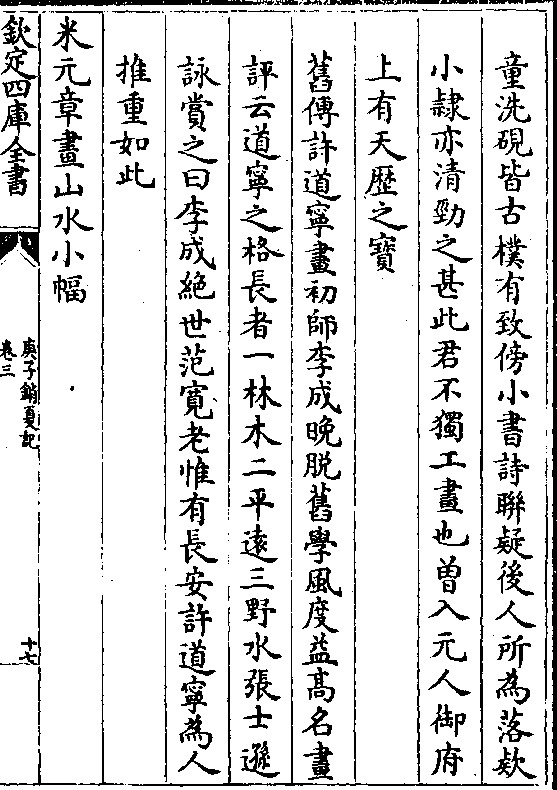 童洗硯皆古樸有致傍小書詩聯疑後人所為落欵
小隸亦清勁之甚此君不獨工畫也曾入元人御府
上有天歷之寶
舊傳許道寧畫初師李成晩脱舊學風度益髙名畫
評云道寧之格長者一林木二平逺三野水張士遜
詠賞之曰李成絶世范寛老惟有長安許道寧為人
推重如此
米元章畫山水小幅
欽定四庫全書
庚子銷夏記
卷三
十七